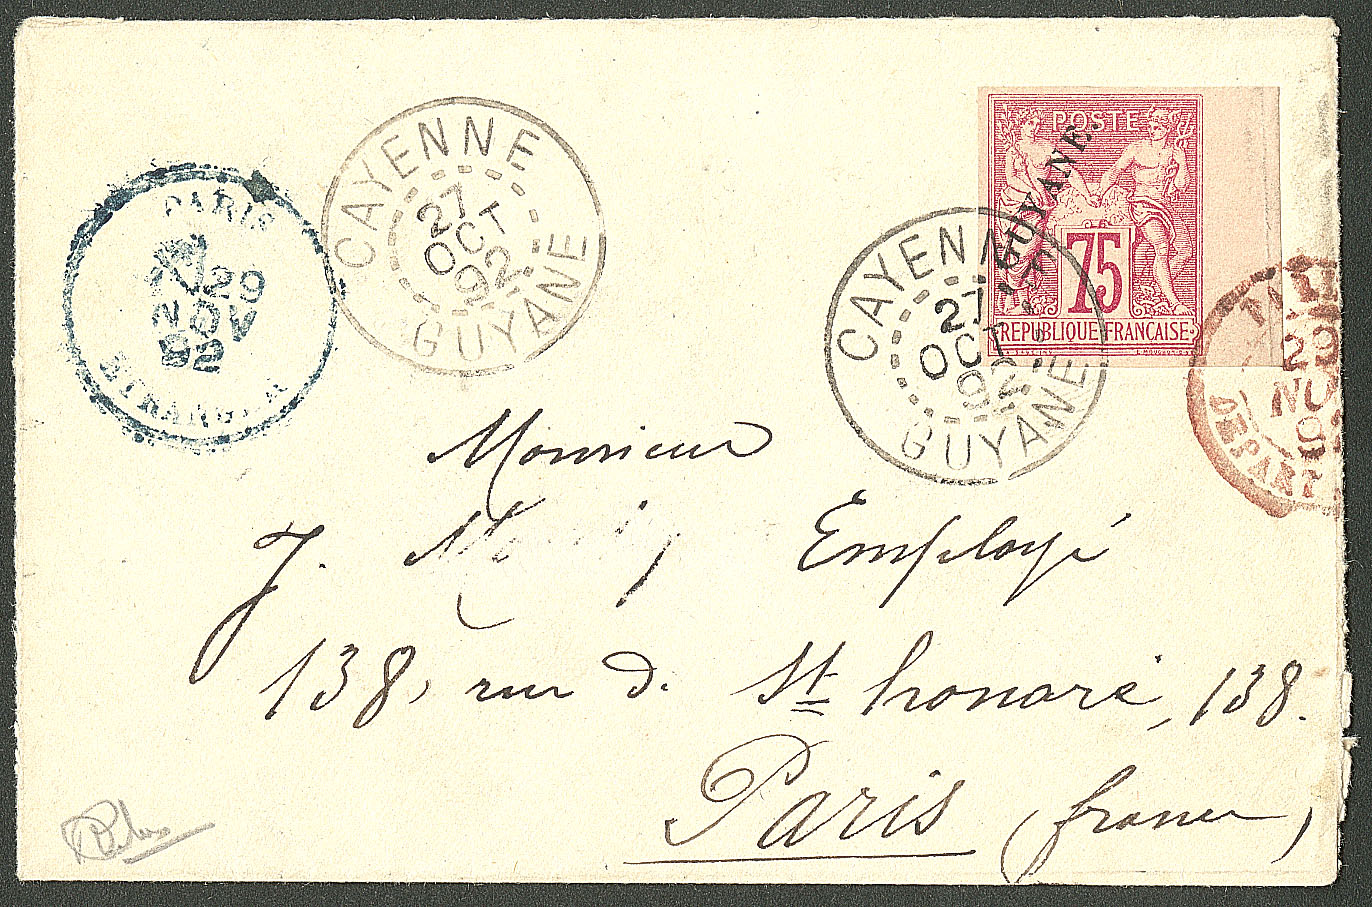 CAYENNE
27
OCT
92
GUYANE
PARIS
29
NOV
92
ETRANGER
POSTE
GUYANE.
75
REPUBLIQUE FRANCAISE
CAYENNE
27
OCT
92
GUYANE
29
NO
9
DEPART
Monsieur
J. Employé
138, rue d. St honoré, 138.
Paris (france)